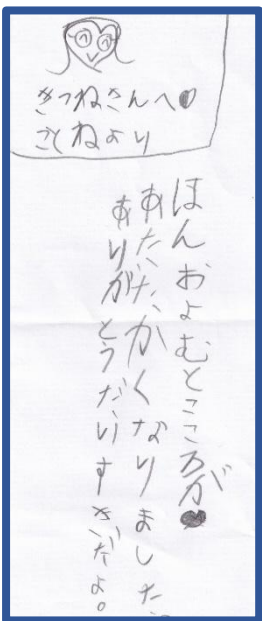 きつねさんへ♥
ことねより
ほんおよむとこころが♥
あたたかくなりました。
ありがとうだいすきだよ。